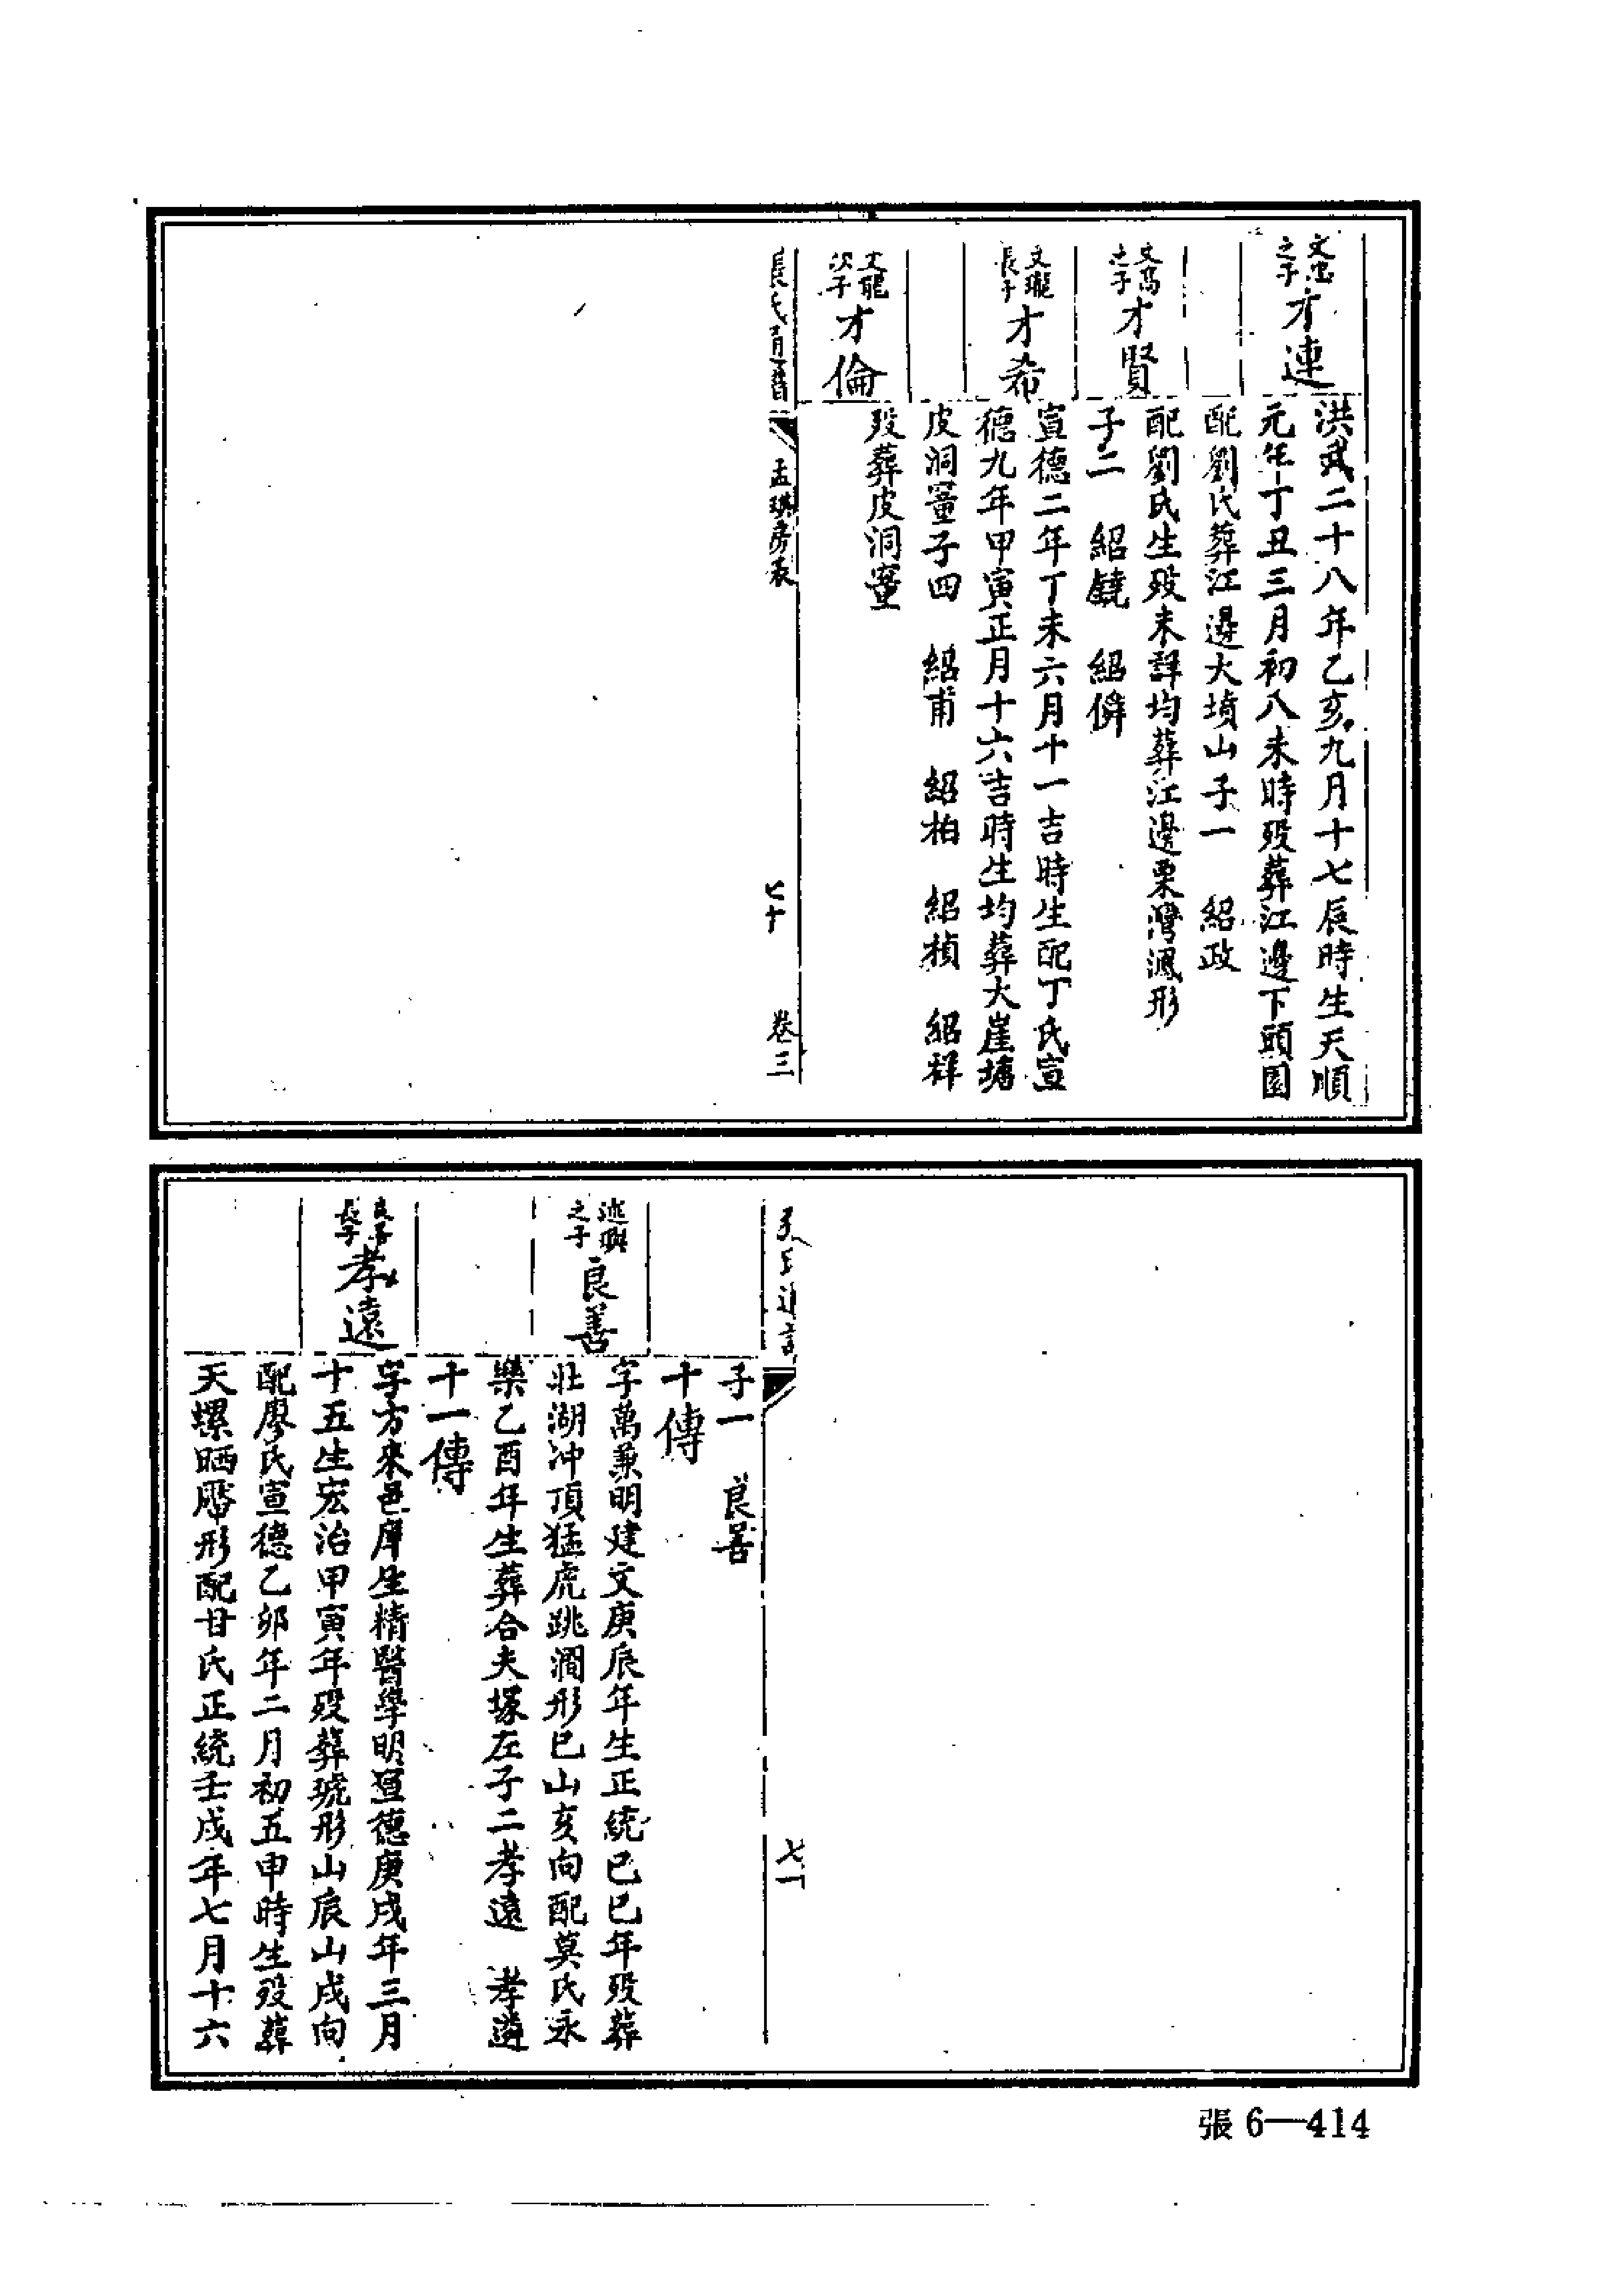 文忠之子
才連
洪武二十八年乙亥九月十七辰時生天順
元年丁丑三月初八未時歿葬江邊下頭園
配劉氏葬江邊大墳山子一　紹政
文高之子
才賢
配劉氏生歿未詳均葬江邊栗灣鳳形
子二　紹
長子
才希
宣德二年丁未六月十一吉時生配丁氏宣
德九年甲寅正月十六吉時生均葬大崖塘
皮洞董子四　紹甫　紹柏　紹楨　紹祥
次子
才倫
歿葬皮洞
張氏通譜
孟琪房表
七十
卷三
張氏通譜
七一
子一　良善
十傳
述興之子
良善
字萬兼明建文庚辰年生正統己巳年歿葬
壯湖冲頂猛虎跳澗形巳山亥向配莫氏永
樂乙酉年生葬合夫塚左子二孝遠　孝遊
十一傳
良善長子
孝遠
字方來邑庠生精醫學明宣德庚戌年三月
十五生宏治甲寅年歿葬琥形山辰山戌向
配廖氏宣德乙卯年二月初五申時生歿葬
天螺晒靨形配甘氏正統壬戌年七月十六
張 6—414